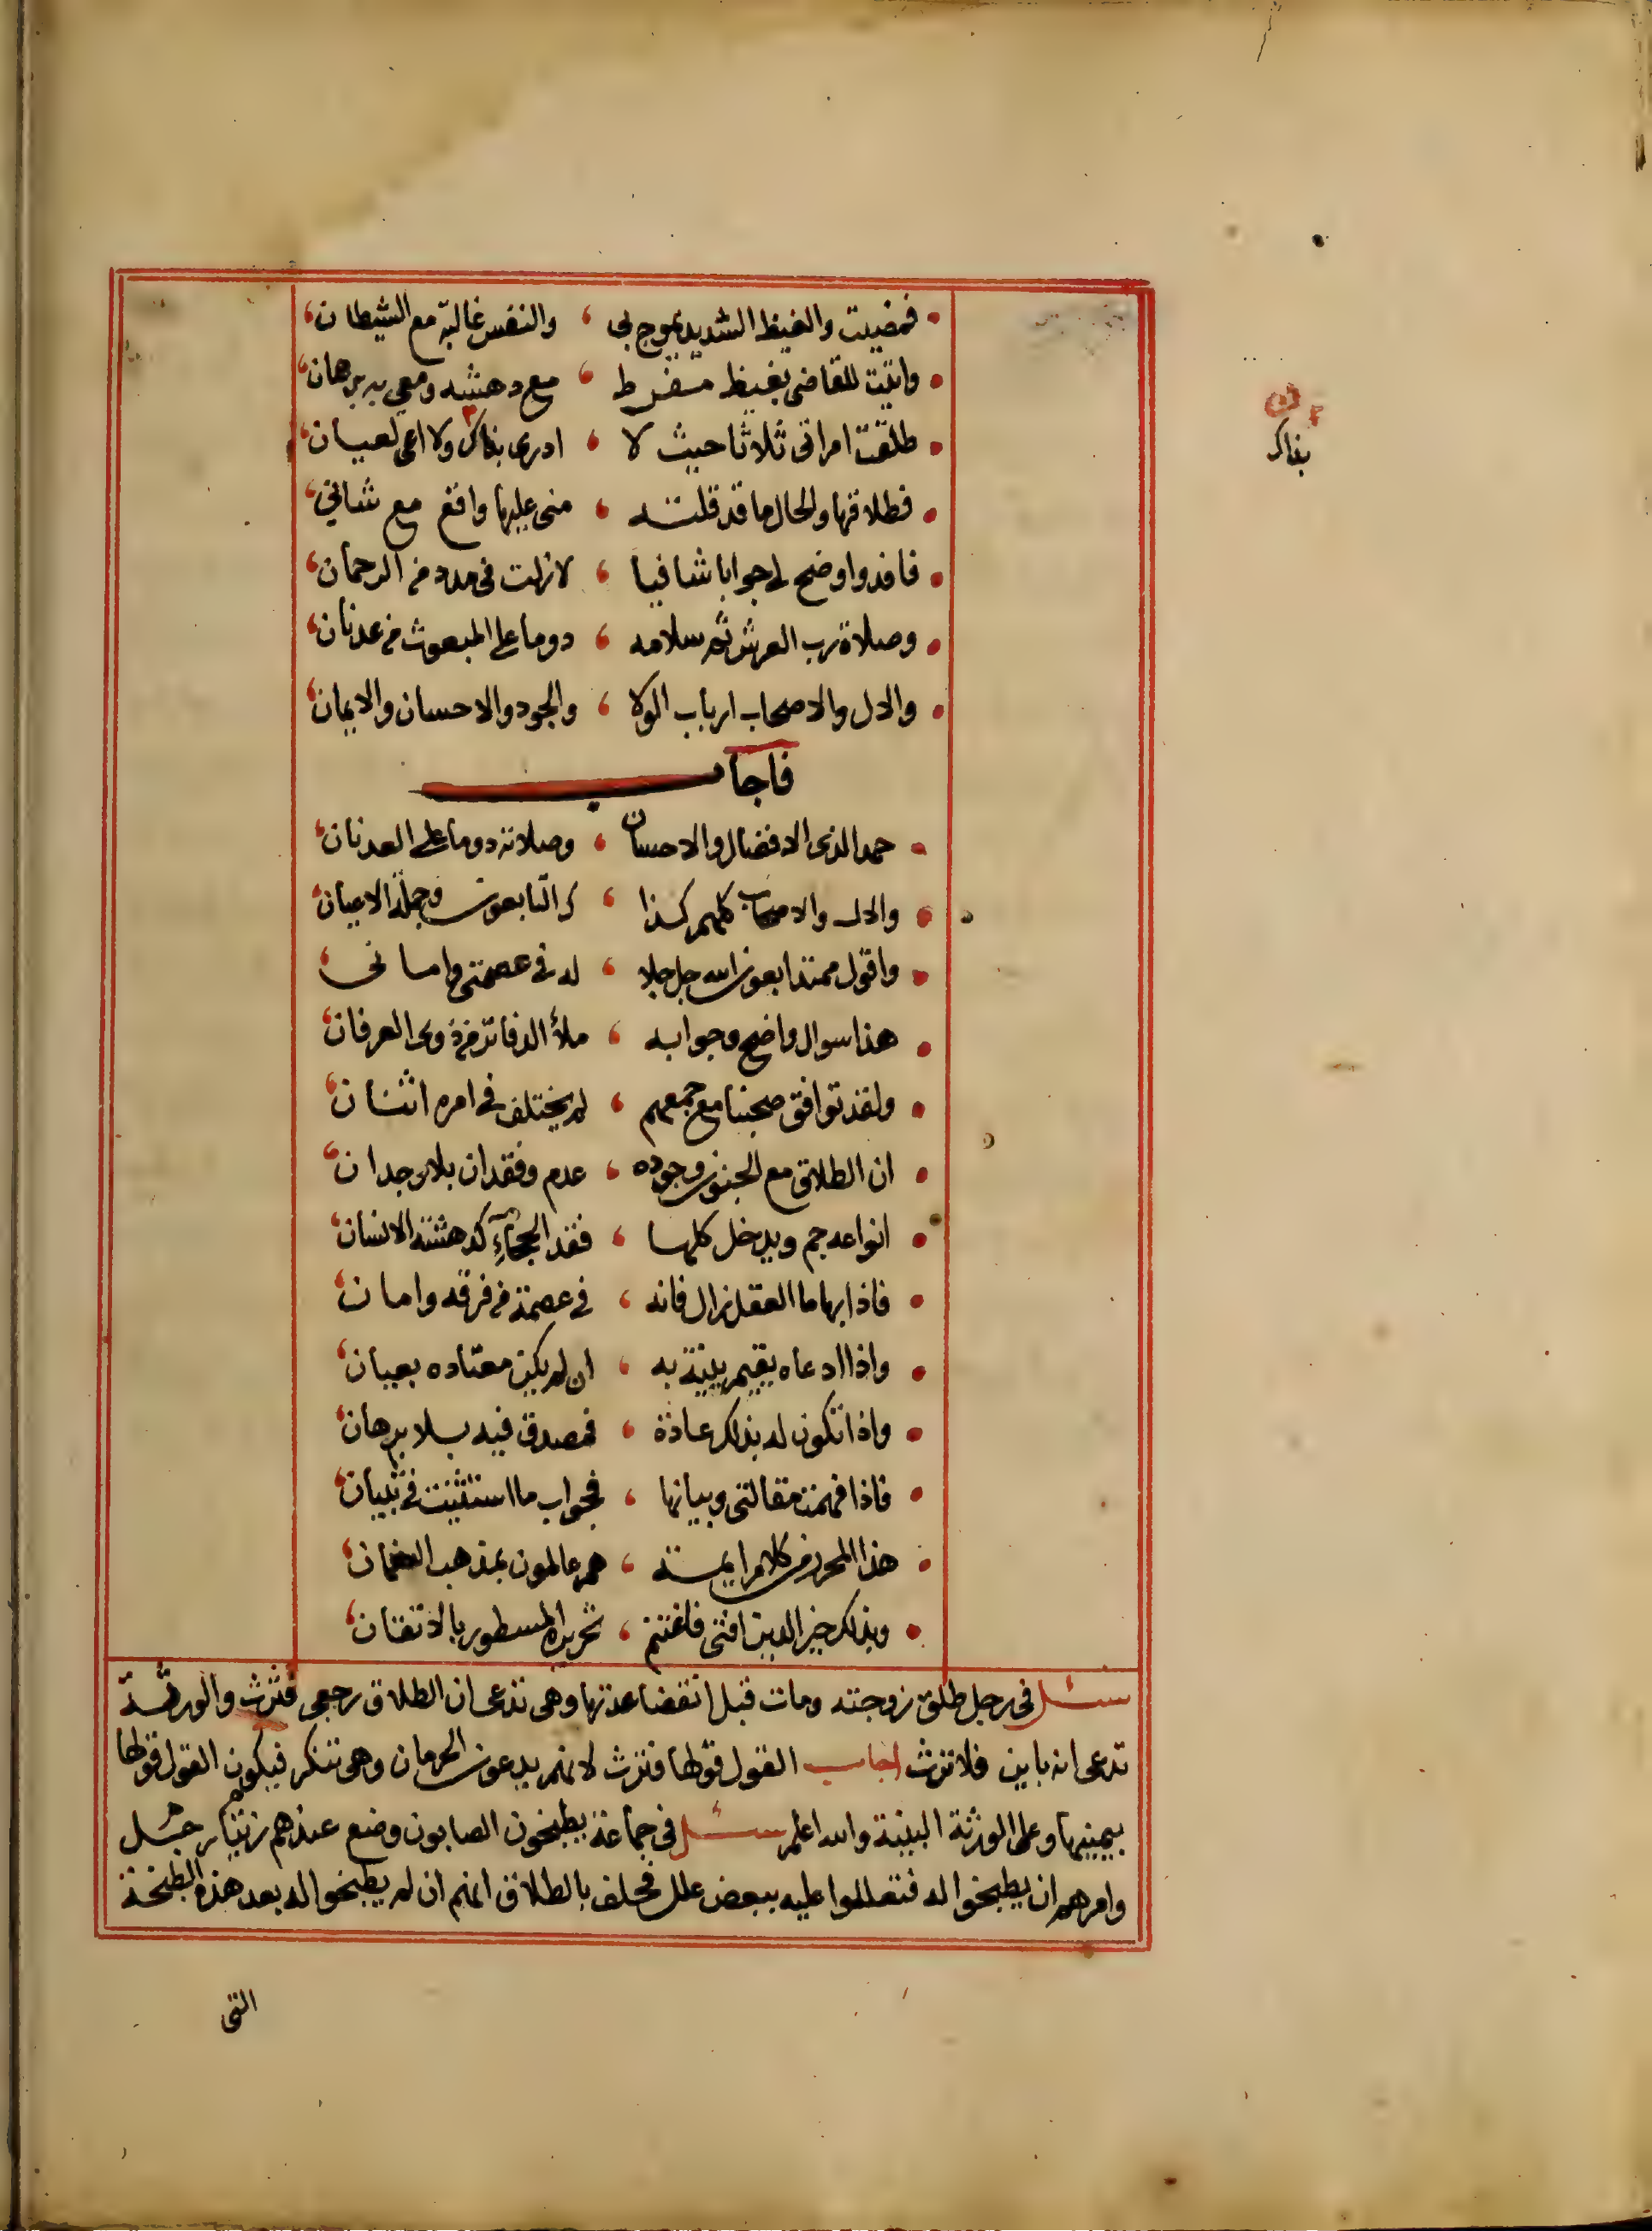 فمضيت والغيظ الشديد يموج بي ، والنفس غالبة مع الشيطان،
واتيت للقاضي بغيظ مفرط ، مع دهشه ومعي به برهان،
طلقت امراتي ثلاثا حيث لا ، ادرى بذاك ولا اعي لعيان،
بذاك
فطلاقها والحال ما قد قلته ، مني عليها واقع مع شاني،
فافدوا وضح لي جوابا شافيا ، لازلت في مدد من الرحمان،
وصلاة رب العرش ثم سلامه ، دوما على المبعوث من عدنان،
والال والاصحاب ارباب الولا ، والجود والاحسان والايمان،
فاجاب
حمدا لذى الافضال والاحسان ، وصلاته دوما على العدنان،
والال والاصحاب كلهم كذا ، التابعون وجملة الاعيان،
واقول ممتدا بعون الله جل جلا ، له في عصمتي واماني،
هذا سوال واضح وجوابه ، ملأ الدفاتر من ذوى العرفان،
ولقد توافق صحبنا مع جمعهم ، لم يختلف في امره اثنان،
ان الطلاق مع الجنون وجوده ، عدم وفقدان بلا وجدان،
انواعه جم ويدخل كلها ، فقد الحجاء كدهشة الانسان،
فاذا بها ما العقل زال فانه ، في عصمة من فرقه وامان،
واذا ادعاه يقيم بينة به ، ان لم يكن معتاده بعيان،
واذا تكون له بذلك عادة ، فمصدق فيه بلا برهان،
فاذا فهمت مقالتي وبيانها ، فجواب ما استثبت في تبيان،
هذا المحرر من كلام ايمة ، هم عالمون بمذهب النعمان،
وبذلك خير الدين افتى فاغتنم ، تحريره المسطور بالاتقان،
سئل في رجل طلق زوجته ومات قبل انقضا عدتها وهى تدعى ان الطلاق رجعى فترث والورثة
تدعى انه باين فلا ترث اجاب القول قولها فترث لانهم يدعون الحرمان وهى تنكر فيكون القول قولها
بيمينها وعلى الورثة البينة والله اعلم سئل في جماعة يطبخون الصابون وضع عندهم زيتا رجل
وامرهم ان يطبخوا له فتعللوا عليه ببعض علل فحلف بالطلاق انهم ان لم يطبخوا له بعد هذه الطبخة
التى